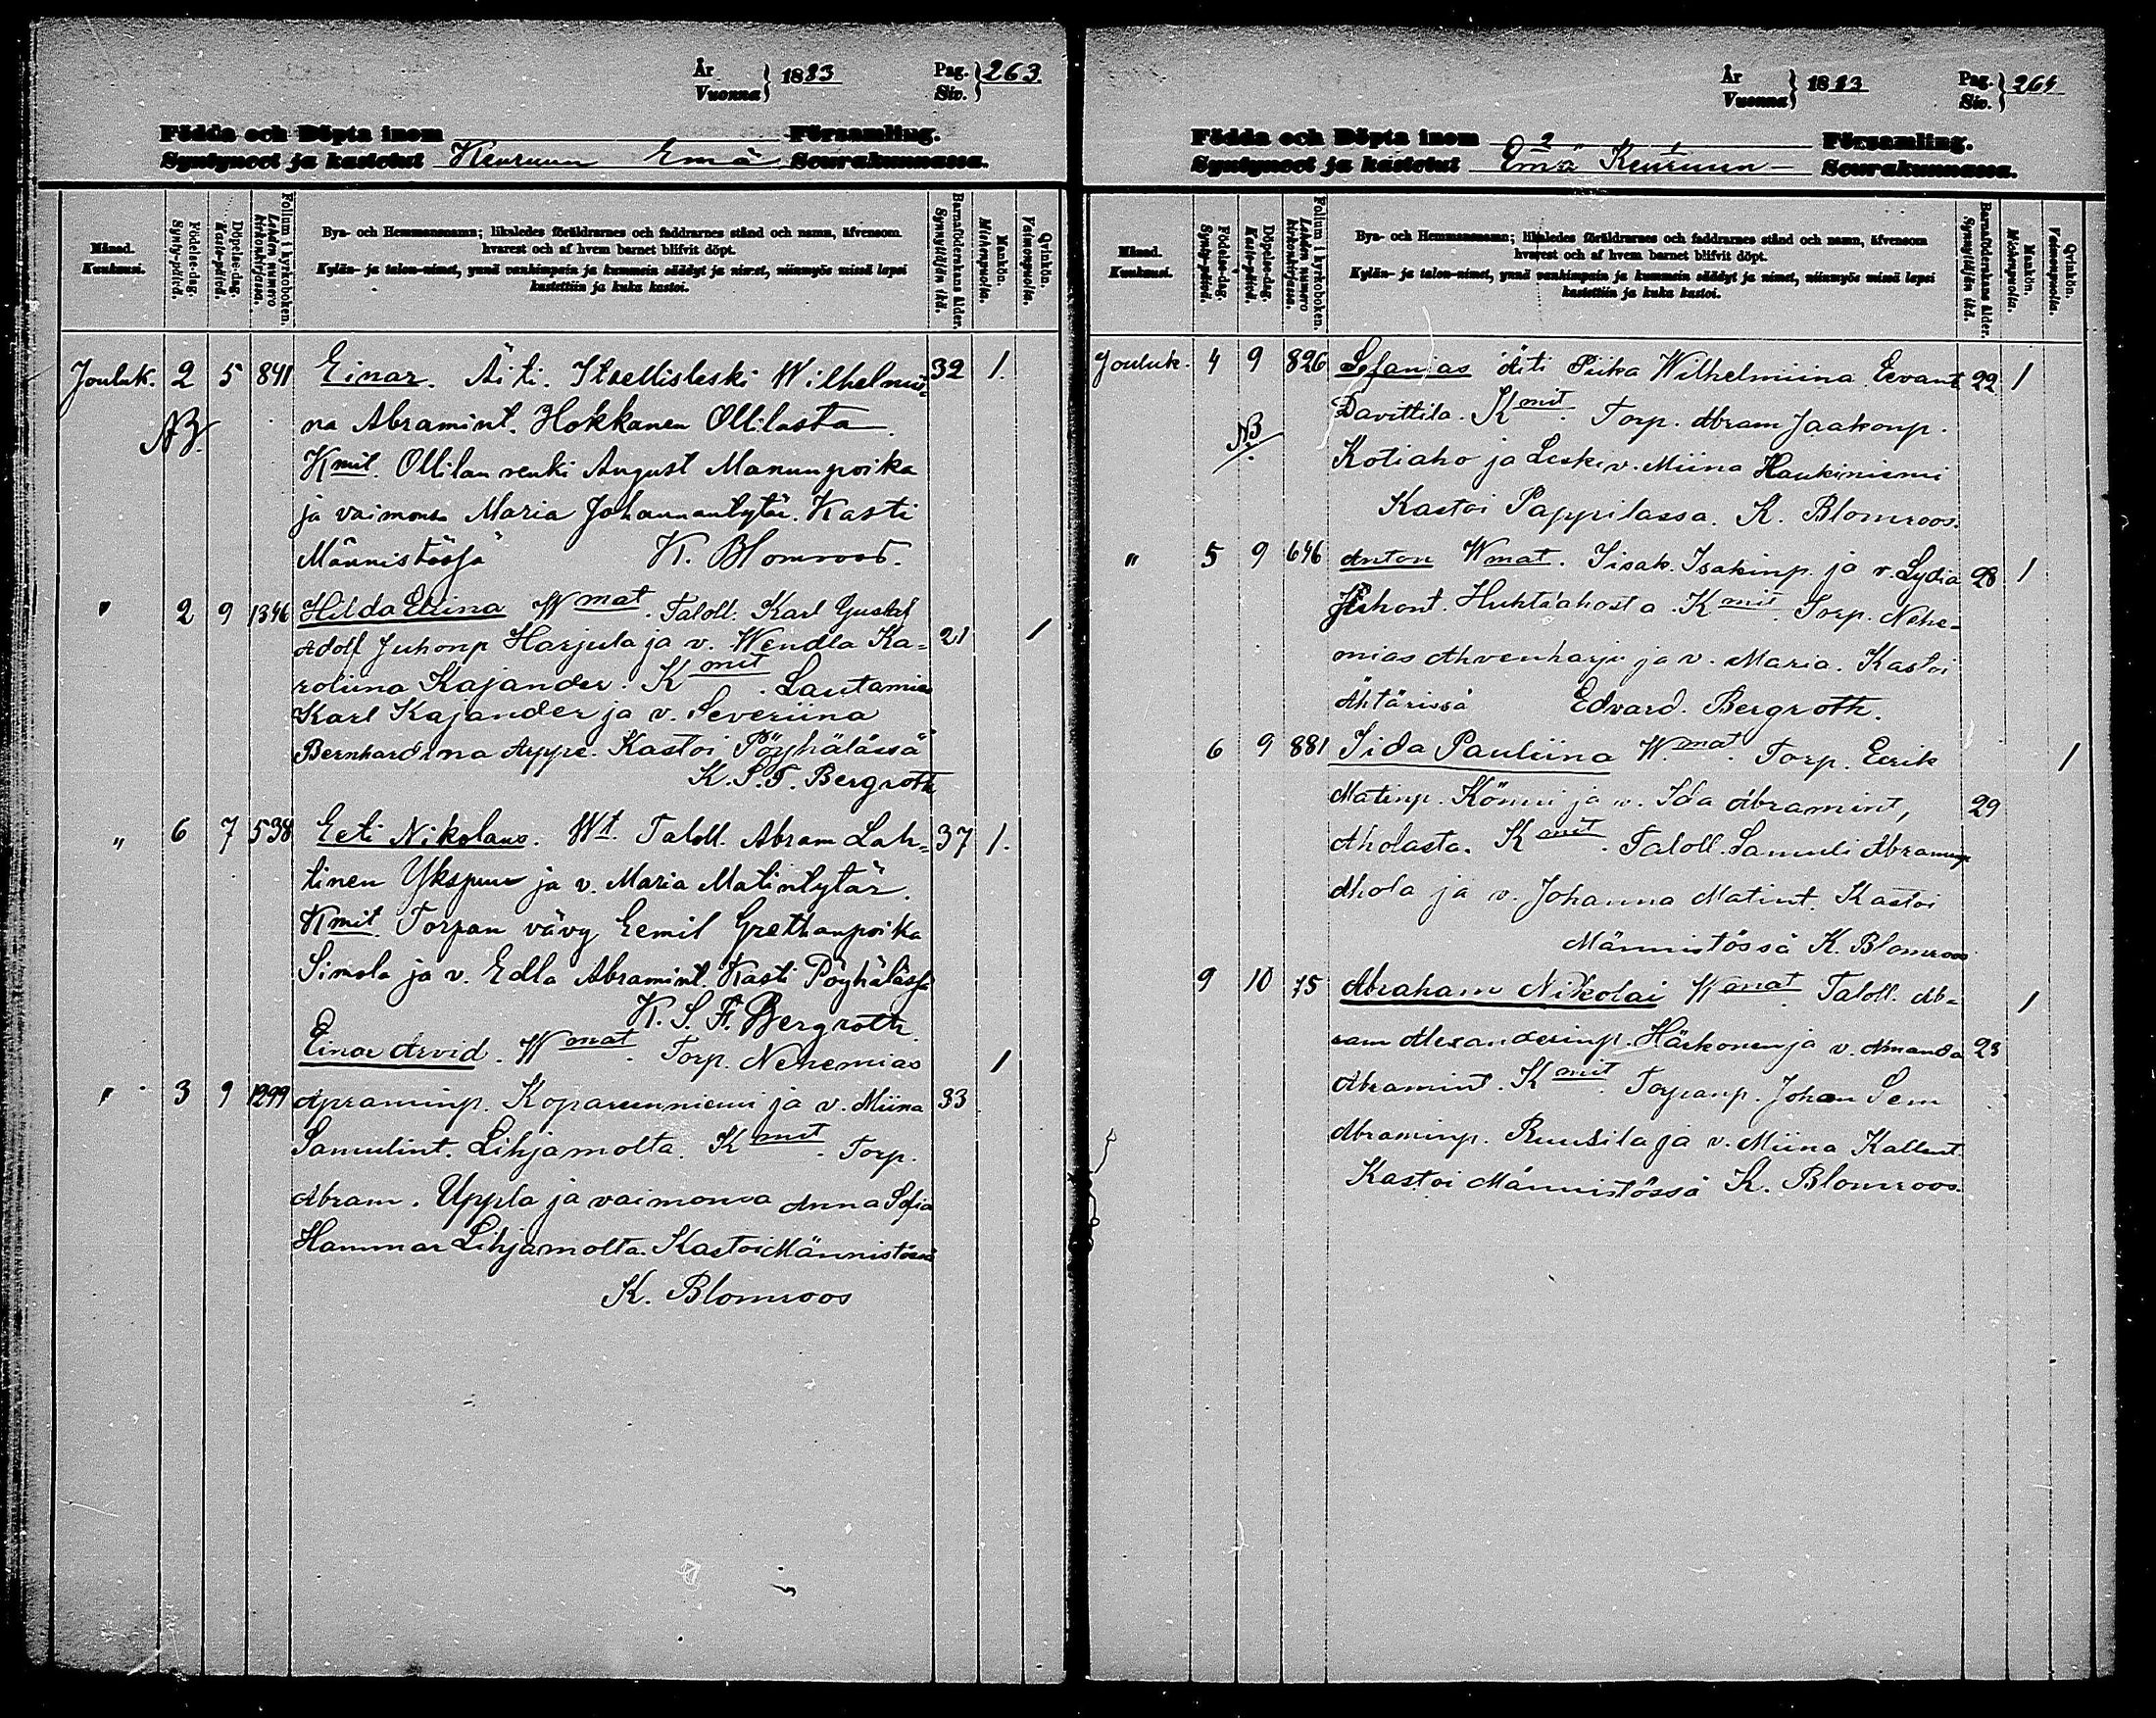 År
Vuonna } 1883
Pag.
Siv. } 263.
Födda och Döpta inom Församling.
Syntyneet ja kastetut Keuruun Emä Seurakunnassa.
Månad.
Kuukausi.
Födelse-dag.
Synty-päivä.
Döpelse-dag.
Kaste-päivä.
Folium i kyrkoboken.
Lehden numero kirkonkirjassa.
Bya- och Hemmansnamn; likaledes föräldrarnes och faddrarnes stånd och namn, äfvensom
hvarest och af hvem barnet blifvit döpt.
Kylän- ja talon-nimet, ynnä vanhimpain ja kummein säädyt ja nimet, niinmyös missä lapsi
kastettiin ja kuka kastoi.
Barnaföderskans ålder.
Synnyttäjän ikä.
Mankön.
Miehenpuolia.
Qvinkön.
Vaimonpuolia.
Jouluk. 2 5 841 Einar. Äiti. Itsellisleski Wilhelmii 32 1.
NB. na Abramint. Hokkanen Ollilasta.
Kmit. Ollilan renki August Manuunpoika
ja vaimonsa Maria Johannantytär. Kasti
Männistössä K. Blomroos.
" 2 9 1346 Hilda Elina Wmat. Taloll. Karl Gustaf
Adolf Juhonp Harjula ja v. Wendla Ka= 21 1
roliina Kajander. Kmit. Lautamies
Karl Kajander ja v. Severiina
Bernhardina Aeppe. Kastoi Pöyhälässä
K. S. F. Bergroth
" 6 7 538 Eeti Nikolaus. Wt. Taloll. Abram Lah= 37 1.
tinen Ykspuu ja v. Maria Matintytär.
Kmit. Torpan vävy Eemil Grethanpoika
Simola ja v. Edla Abramint. Kasti Pöyhälässä
K. S. F. Bergroth.
Einar Arvid. Wmat. Torp. Nehemias 1
" 3 9 1299 Apraminp. Koparenniemi ja v. Miina 33
Samulint. Lihjamolta. Kmit. Torp.
Abram. Uppla ja vaimonsa Anna Sofia
Hammar Lihjamolta. Kastoi Männistössä
K. Blomroos
År
Vuonna } 1883
Pag.
Siv. } 264
Födda och Döpta inom 2 1 Församling.
Syntyneet ja kastetut Emä Keuruun Seurakunnassa.
Månad.
Kuukausi.
Födelse-dag.
Synty-päivä.
Döpelse-dag.
Kaste-päivä.
Folium i kyrkoboken.
Lehden numero kirkonkirjassa.
Bya- och Hemmansnamn; likaledes föräldrarnes och faddrarnes stånd och namn, äfvensom
hvarest och af hvem barnet blifvit döpt.
Kylän- ja talon-nimet, ynnä vanhimpain ja kummein säädyt ja nimet, niinmyös missä lapsi
kastettiin ja kuka kastoi.
Barnaföderskans ålder.
Synnyttäjän ikä.
Mankön.
Miehenpuolia.
Qvinkön.
Vaimonpuolia.
Jouluk. 4 9 826 Sefanias äiti Piika Wilhelmiina Eevant 22 1
Davittila. Kmit. Torp. Abram Jaakonp.
NB. Kotiaho ja Leskiv. Miina Haukiniemi
Kastoi Pappilassa. K. Blomroos.
" 5 9 646 Anton Wmat. Iisak. Isakinp. ja v. Lydia 28 1
Juhont. Huhtaahosta. Kmit. Torp. Nehe=
mias Ahvenharju ja v. Maria. Kastoi
Ähtärissä Edvard. Bergroth.
6 9 881 Iida Pauliina Wmat. Torp. Eerik 1
Matinp. Könni ja v. Ida Abramint, 29
Aholasta. Kmit. Taloll. Samuli Abraminp
Ahola ja v. Johanna Matint. Kastoi
Männistössä K. Blomroos.
9 10 75 Abraham Nikolai Wmat. Taloll. Ab= 1
ram Alexanderinp. Härkonen ja v. Amanda 23
Abramint. Kmit. Torpanp. Johan Sem
Abraminp. Ruusila ja v. Miina Kallent
Kastoi Männistössä K. Blomroos.